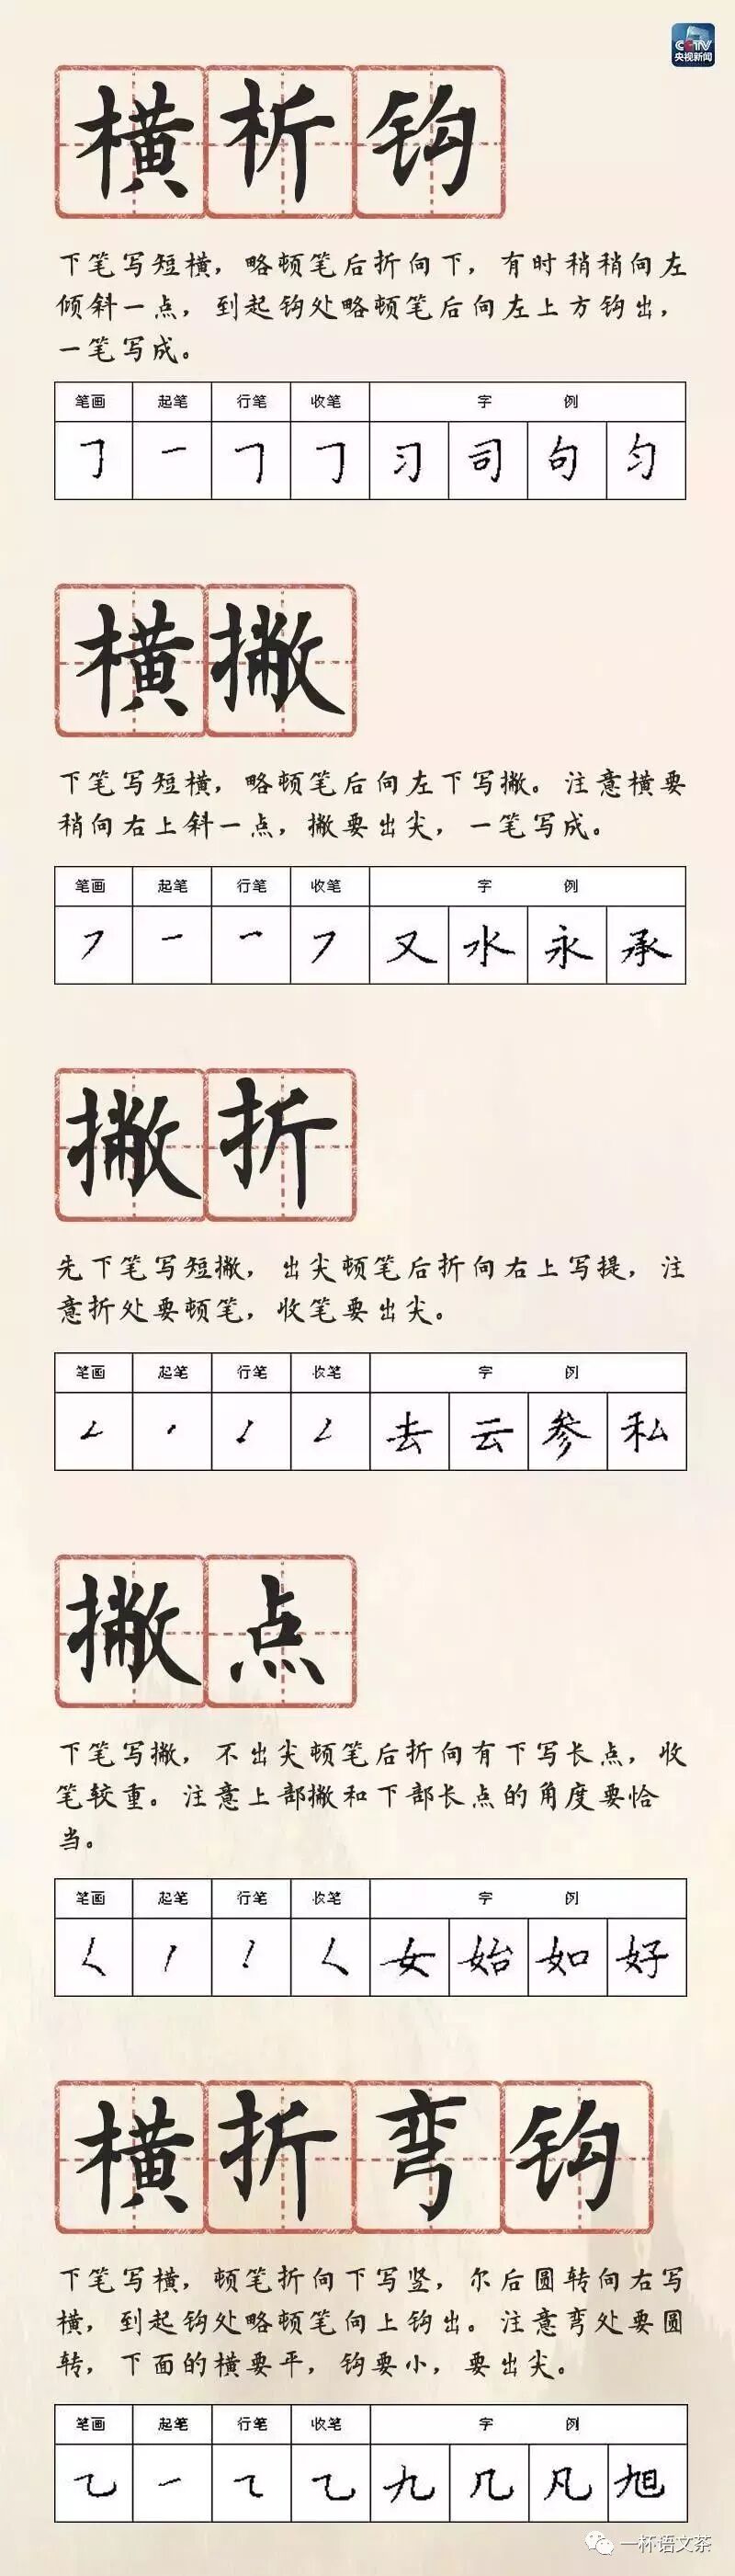 CCTV
央视新闻
横析钩
下笔写短横，略顿笔后折向下，有时稍稍向左
倾斜一点，到起钩处略顿笔后向左上方钩出，
一笔写成。
笔画 起笔 行笔 收笔 字 例
㇆ 一 ㇆ ㇆ 习 司 句 匀
横撇
下笔写短横，略顿笔后向左下写撇。注意横要
稍向右上斜一点，撇要出尖，一笔写成。
笔画 起笔 行笔 收笔 字 例
㇇ 一 ㇇ 又 水 永 承
撇折
先下笔写短撇，出尖顿笔后折向右上写提，注
意折处要顿笔，收笔要出尖。
笔画 起笔 行笔 收笔 字 例
㇜ ㇜ 去 云 参 私
撇点
下笔写撇，不出尖顿笔后折向有下写长点，收
笔较重。注意上部撇和下部长点的角度要恰
当。
笔画 起笔 行笔 收笔 字 例
㇛ 丿 ㇛ 女 始 如 好
横折弯钩
下笔写横，顿笔折向下写竖，尔后圆转向右写
横，到起钩处略顿笔向上钩出。注意弯处要圆
转，下面的横要平，钩要小，要出尖。
笔画 起笔 行笔 收笔 字 例
㇈ 一 ㇈ 九 几 凡 旭
一杯语文茶